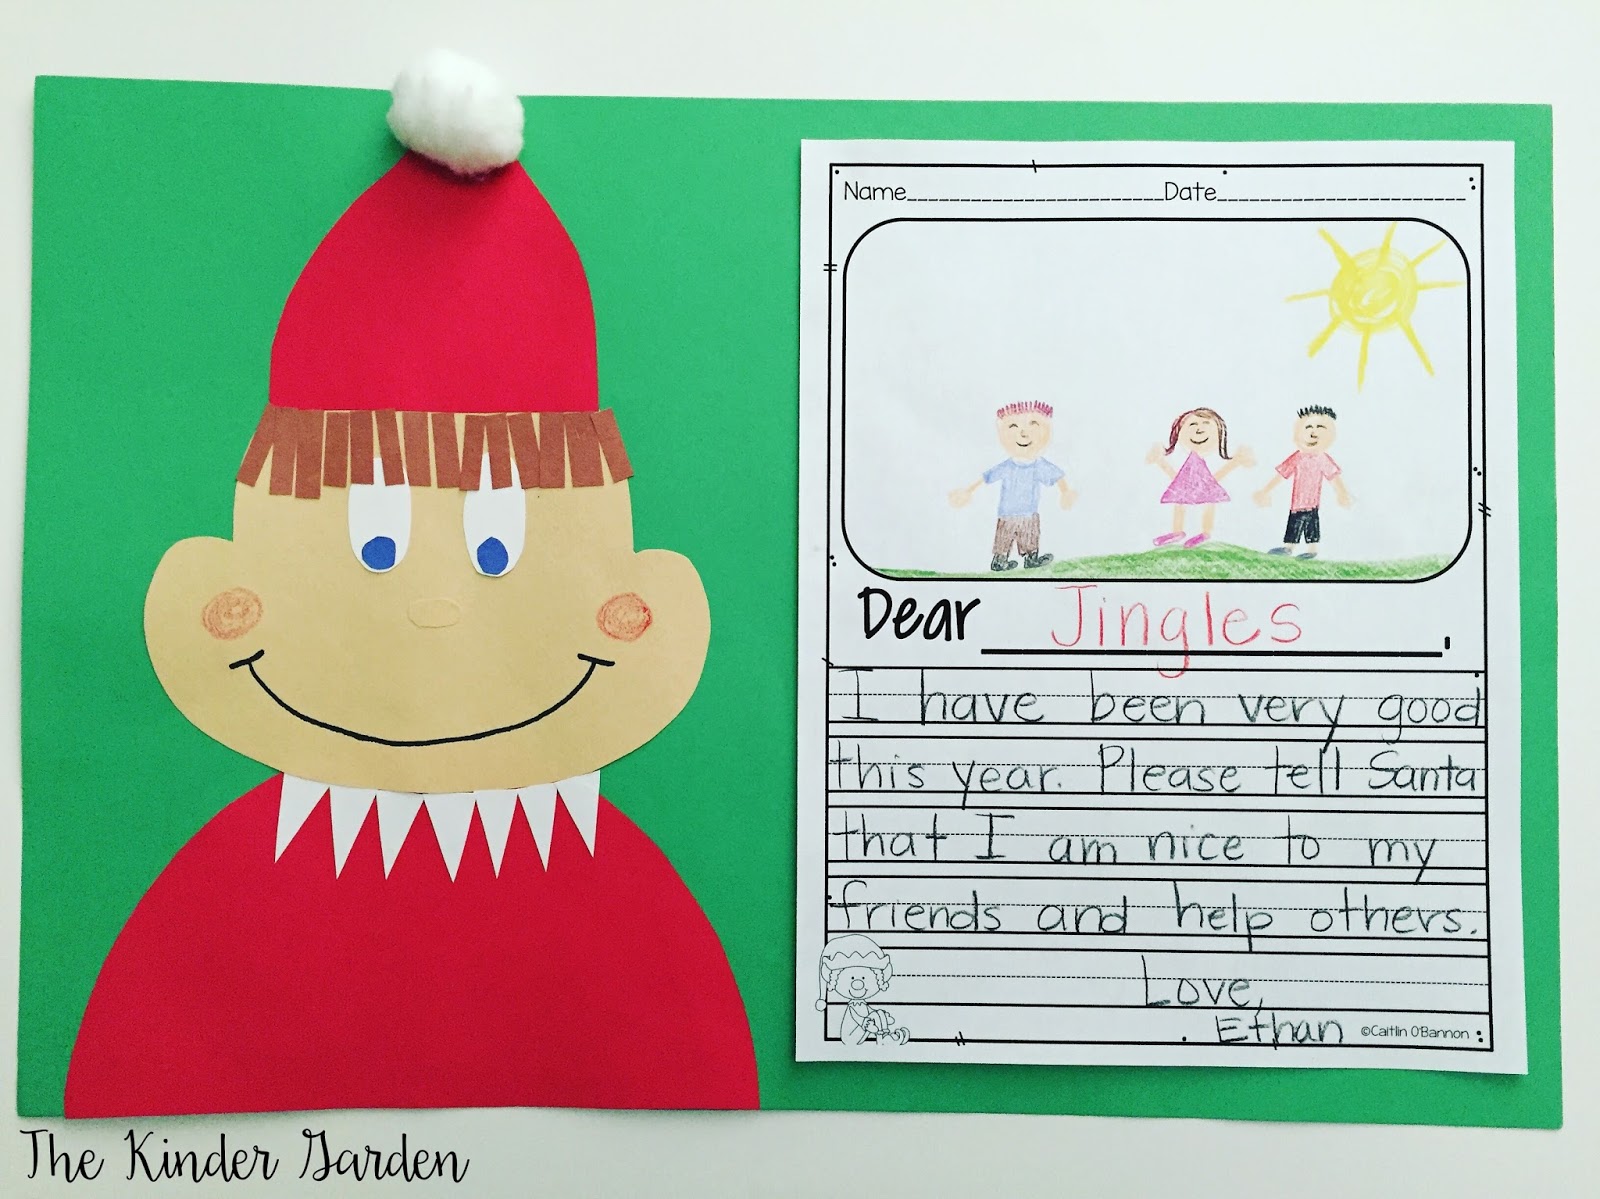 Name________________________Date________________________
Dear Jingles,
I have been very good
this year. Please tell Santa
that I am nice to my
friends and help others.
Love,
Ethan ©Caitlin O'Bannon
The Kinder Garden